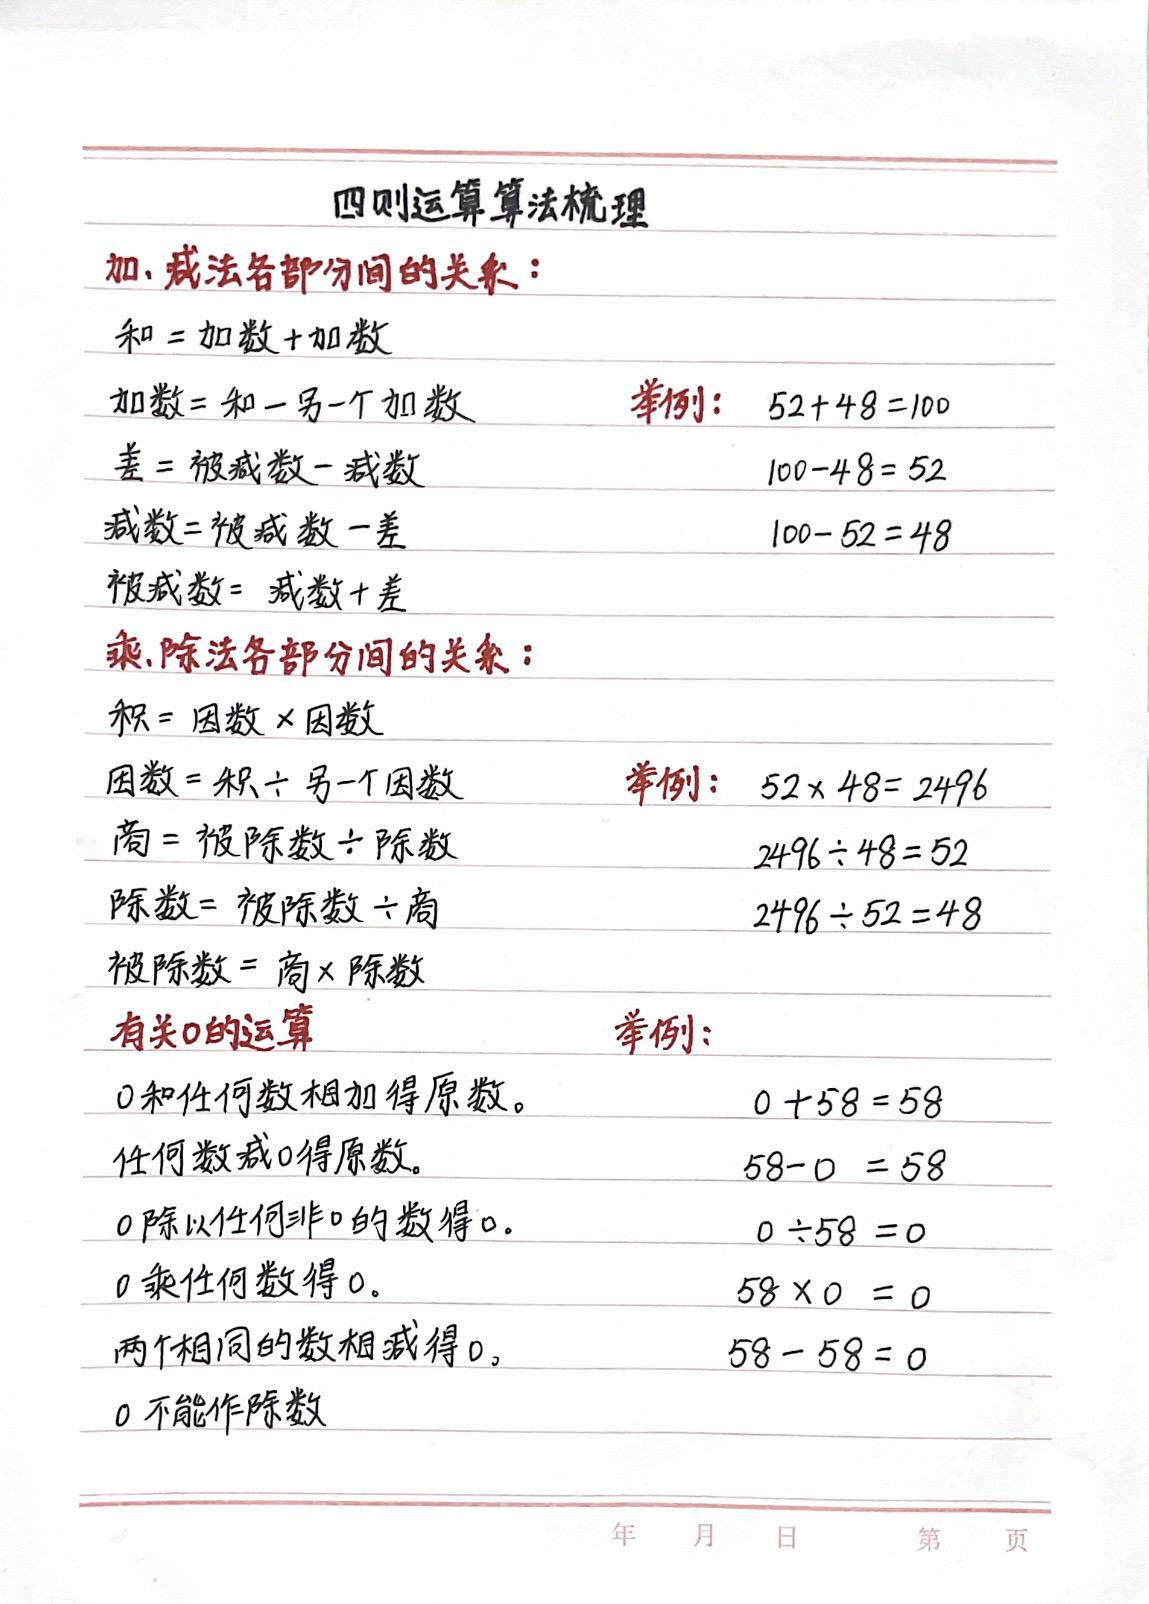 四则运算算法梳理
加、减法各部分间的关系：
和=加数+加数
加数=和-另一个加数 举例： 52+48=100
差=被减数-减数 100-48=52
减数=被减数-差 100-52=48
被减数=减数+差
乘、除法各部分间的关系：
积=因数×因数
因数=积÷另一个因数 举例： 52×48=2496
商=被除数÷除数 2496÷48=52
除数=被除数÷商 2496÷52=48
被除数=商×除数
有关0的运算 举例：
0和任何数相加得原数。 0+58=58
任何数减0得原数。 58-0=58
0除以任何非0的数得0. 0÷58=0
0乘任何数得0。 58×0=0
两个相同的数相减得0。 58-58=0
0不能作除数
年 月 日 第 页